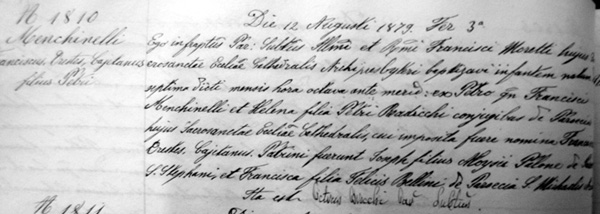 N 1810
Menchinelli
Franciscus Orestes, Cajetanus
filius Petri
Die 12 Augusti 1879. Fer 3ª
Ego infrptus Par: Subtus Illmi et Rymi Francisci Moretti hujus
crosanctae Eccliae Cathedralis Archipresbyteri baptizavi infantem natum
septimo dicti mensis hora octava ante merid: ex Petro qn Francisci
Menchinelli et Helena filia Petri conjugibus de Paroecia
hujus Sacrosanctae Eccliae Cathedralis, cui imposita fuere nomina Franciscus
Orestes, Cajetanus. Patrini fuerunt Joseph filius Aloysii de
S. Stephani, et Francisca filia Felicis Bellini de Paroecia S. Michaelis
Ita est Par Subtus
N 1811